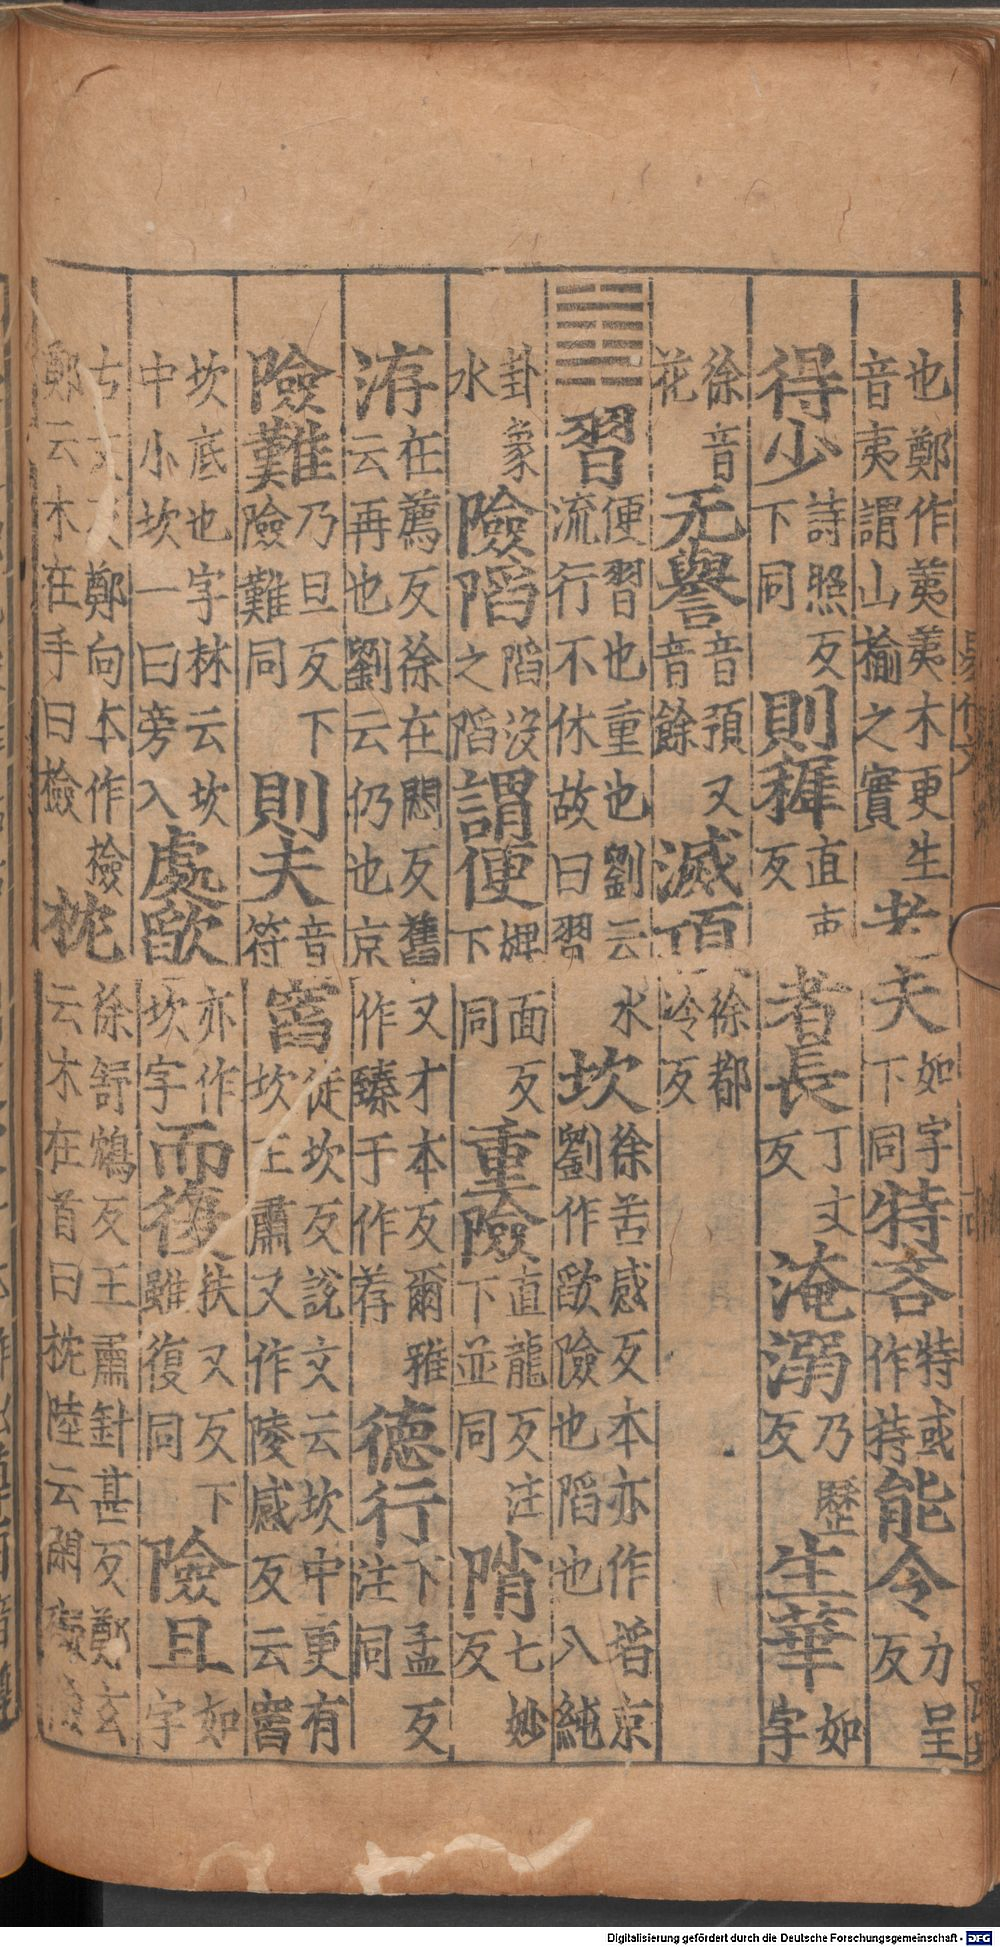 也鄭作荑荑木更生音夷謂山榆之實老夫如字下同特吝特或作持能令力呈反
得少詩照反下同則稺直吏反者長丁丈反淹溺乃歷反生華如字
徐音花无譽音預又音餘滅頂徐都冷反
䷜習便習也重也劉云水流行不休故曰習坎徐苦感反本亦作埳京劉作欿險也陷也八純
卦象水險陷陷沒之陷謂便婢面反下同重險直龍反注下並同陗七妙反
洊在薦反徐在悶反舊又才本反爾雅云再也劉云仍也京作臻于作荐德行下孟反注同
險難乃旦反下險難同則夫音符窞徒坎反說文云坎中更有坎王肅又作陵感反云窞
坎底也字林云坎中小坎一曰旁入處欿亦作坎字而復扶又反下雖復同險且如字
古文鄭向本作檢鄭云木在手曰檢枕徐舒鴆反王肅針甚反鄭玄云木在首曰枕陸云閑礙
Digitalisierung gefördert durch die Deutsche Forschungsgemeinschaft - DFG